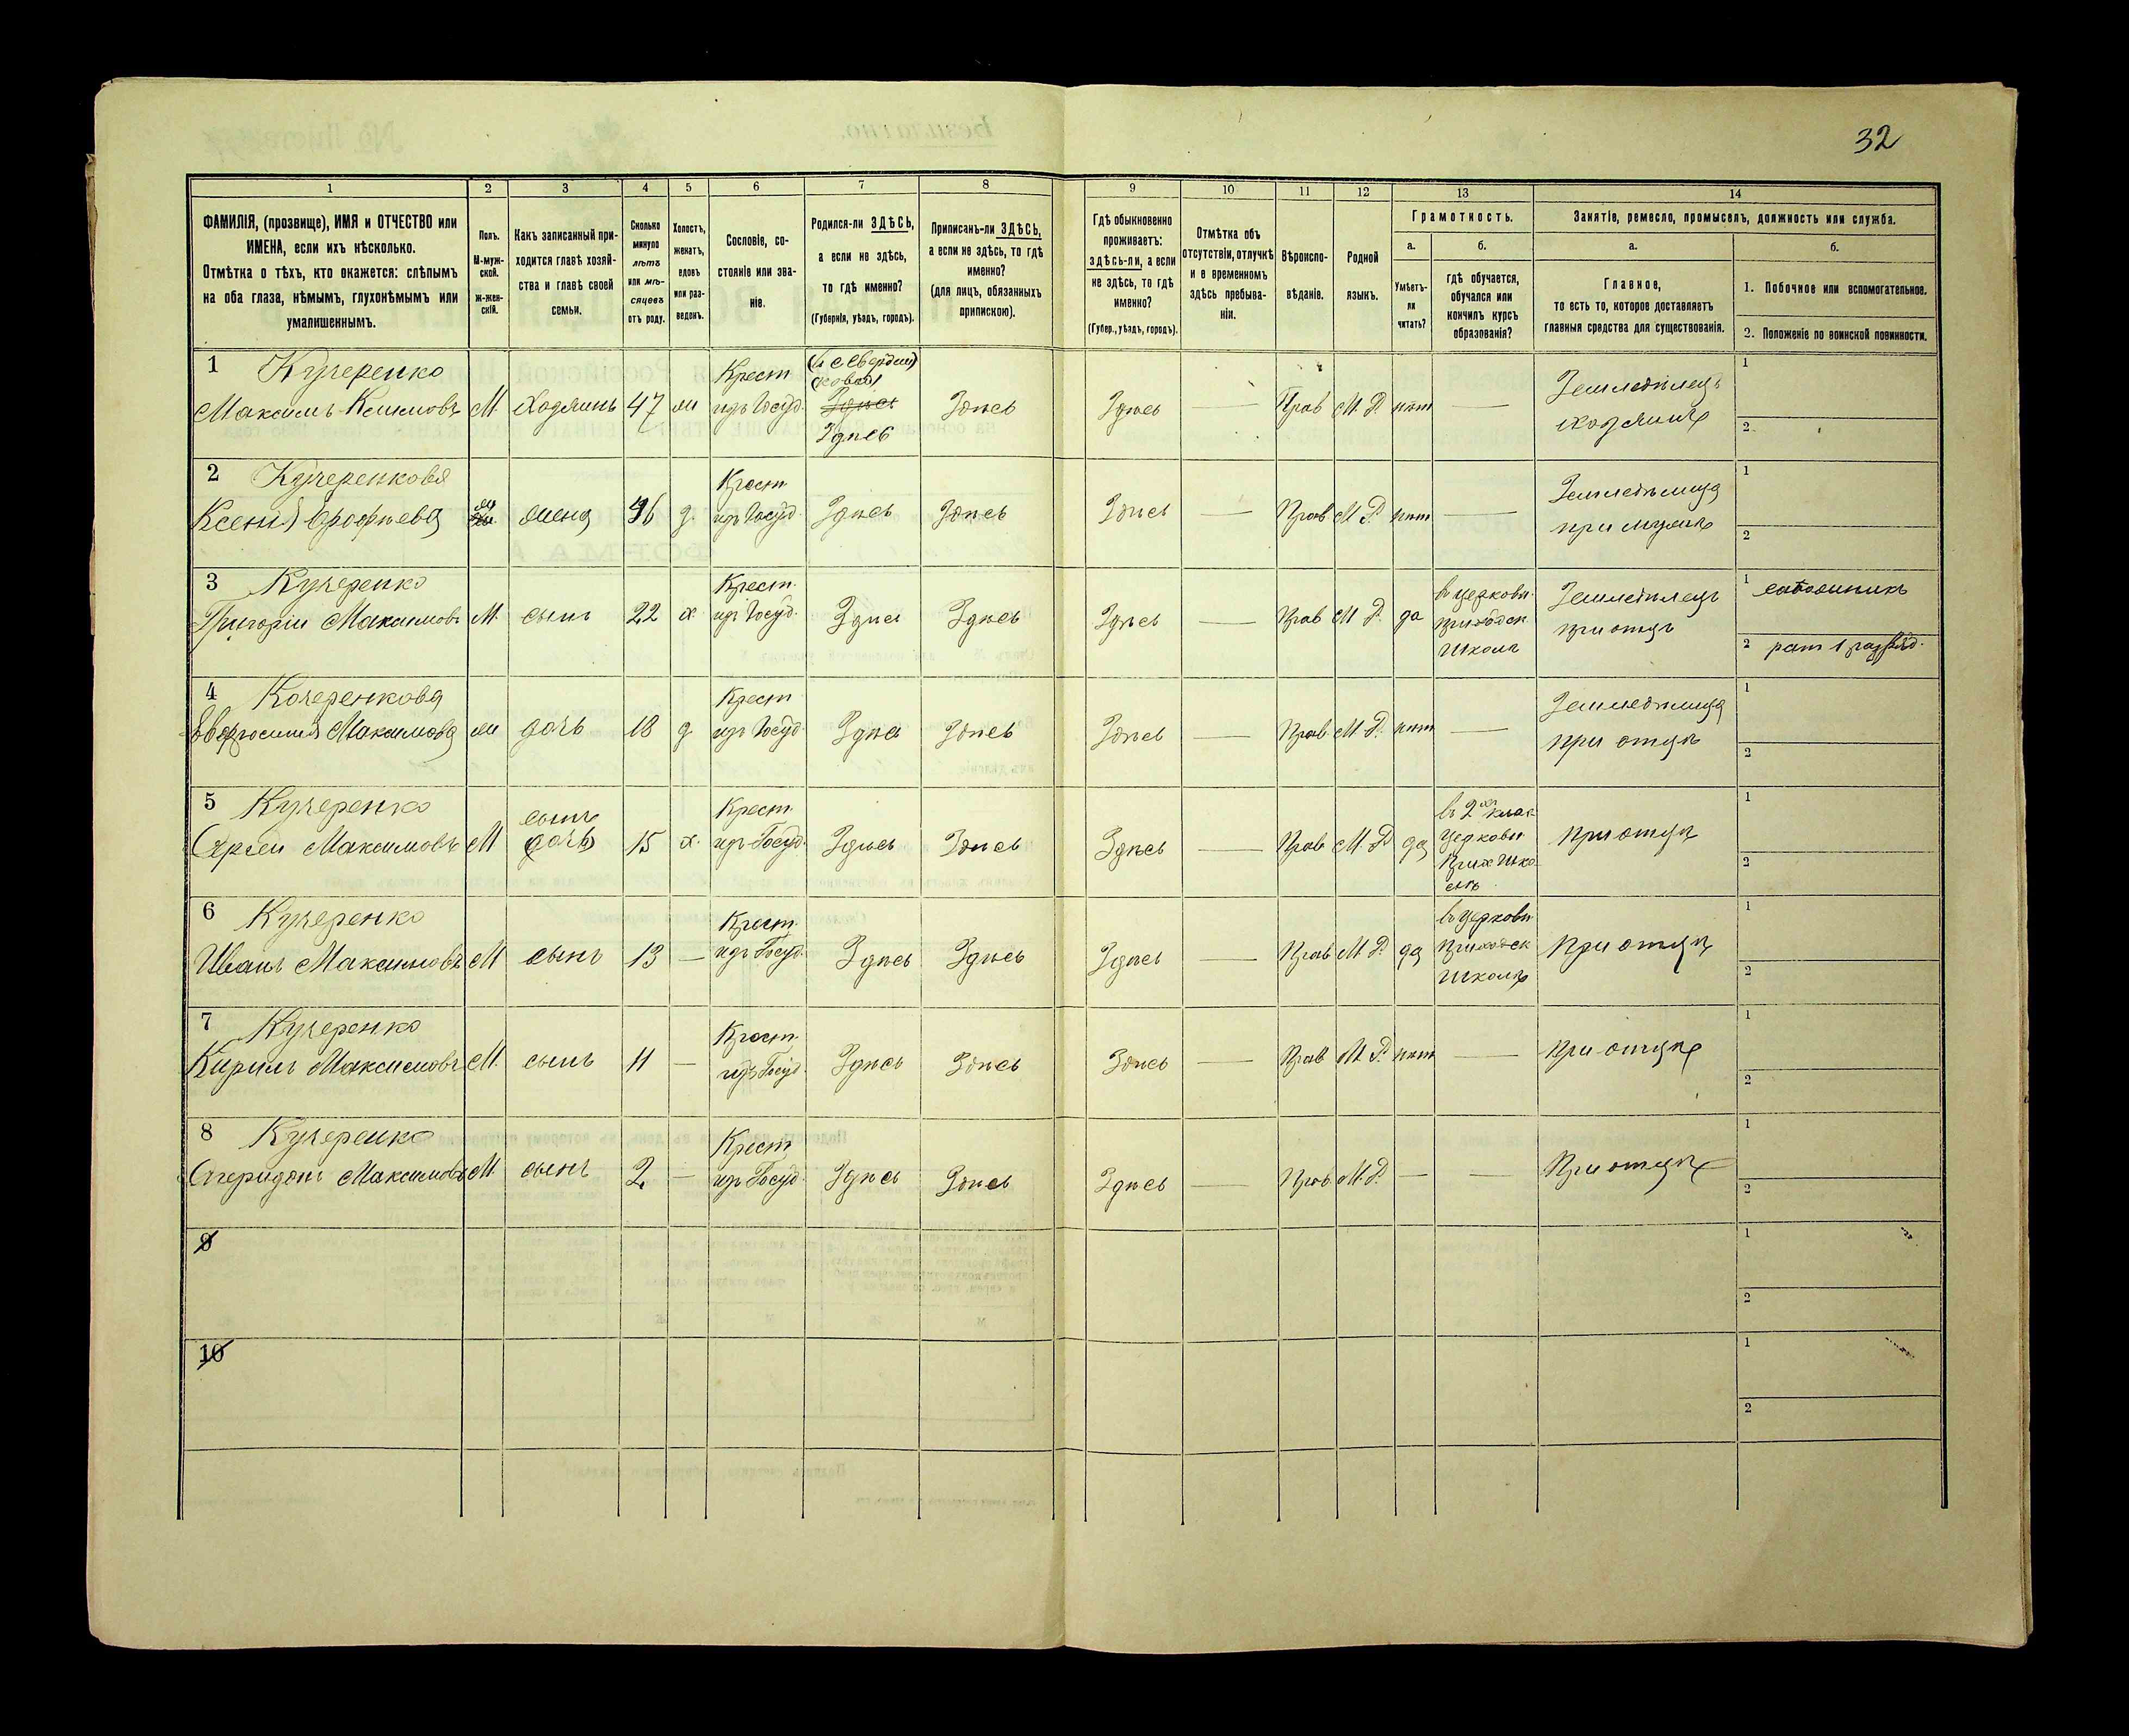 32
1 2 3 4 5 6 7 8 9 10 11 12 13 14
ФАМИЛІЯ, (прозвище), ИМЯ и ОТЧЕСТВО или
ИМЕНА, если ихъ нѣсколько.
Отмѣтка о тѣхъ, кто окажется: слѣпымъ
на оба глаза, нѣмымъ, глухонѣмымъ или
умалишеннымъ.
Полъ.
М-муж-
ской.
ж-жен-
скій.
Какъ записанный при-
ходится главѣ хозяй-
ства и главѣ своей
семьи.
Сколько
минуло
лѣтъ
или мѣ-
сяцевъ
отъ роду.
Холостъ,
женатъ,
вдовъ
или раз-
веденъ.
Сословіе, со-
стояніе или зва-
ніе.
Родился-ли ЗДѢСЬ,
а если не здѣсь,
то гдѣ именно?
(Губернія, уѣздъ, городъ).
Приписанъ-ли ЗДѢСЬ,
а если не здѣсь, то гдѣ
именно?
(для лицъ, обязанныхъ
припискою).
Гдѣ обыкновенно
проживаетъ:
здѣсь-ли, а если
не здѣсь, то гдѣ
именно?
(Губер., уѣздъ, городъ).
Отмѣтка объ
отсутствіи, отлучкѣ
и о временномъ
здѣсь пребыва-
ніи.
Вѣроиспо-
вѣданіе.
Родной
языкъ.
Грамотность.
а.
Умѣетъ-
ли
читать?
б.
гдѣ обучается,
обучался или
кончилъ курсъ
образованія?
Занятіе, ремесло, промыселъ, должность или служба.
а.
Главное,
то есть то, которое доставляетъ
главныя средства для существованія.
б.
1. Побочное или вспомогательное.
2. Положеніе по воинской повинности.
1 Кучеренко
Максимъ Климовъ М. Хозяинъ 47 ж
Крест
изъ Госуд.
Здѣсь
Здѣсь
Здѣсь
Здѣсь — Прав М. Р. нѣт —
Земледѣлецъ
хозяинъ
1
2
2 Кучеренкова
Ксенія ж жена 46 з.
Крест
изъ Госуд.
Здѣсь Здѣсь Здѣсь — Прав М. Р. нѣт —
Земледѣлица
при мужѣ
1
2
3 Кучеренко
Григорій Максимовъ М. сынъ 22 х.
Крест.
изъ Госуд.
Здѣсь Здѣсь Здѣсь — Прав М. Р. да
въ церковн.
приходск
школѣ
Земледѣлецъ
при отцѣ
1
2 рат 1 разряд.
4 Кочеренкова
Евфросинія Максимова ж дочь 18 з
Крест
изъ Госуд.
Здѣсь Здѣсь Здѣсь — Прав. М. Р. нѣт —
Земледѣлица
при отцѣ
1
2
5 Кучеренко
Сергѣй Максимовъ М
сынъ
(дочь)
15 х.
Крест.
изъ Госуд.
Здѣсь Здѣсь Здѣсь — Прав. М. Р да
въ 2хъ клас
церковн
прих шко
лѣ
при отцѣ
1
2
6 Кучеренко
Иванъ Максимовъ М сынъ 13 —
Крест.
изъ Госуд.
Здѣсь Здѣсь Здѣсь — Прав М. Р. да
въ церковн
приходск
школѣ
при отцѣ
1
2
7 Кучеренко
Кирилъ Максимовъ М. сынъ 11 —
Крест.
изъ Госуд.
Здѣсь Здѣсь Здѣсь — Прав М. Р. нѣт — при отцѣ
1
2
8 Кучеренко
Спиридонъ Максимовъ М. сынъ 2 —
Крест
изъ Госуд.
Здѣсь Здѣсь Здѣсь — Прав. М. Р. — — При отцѣ
1
2
9
1
2
10
1
2